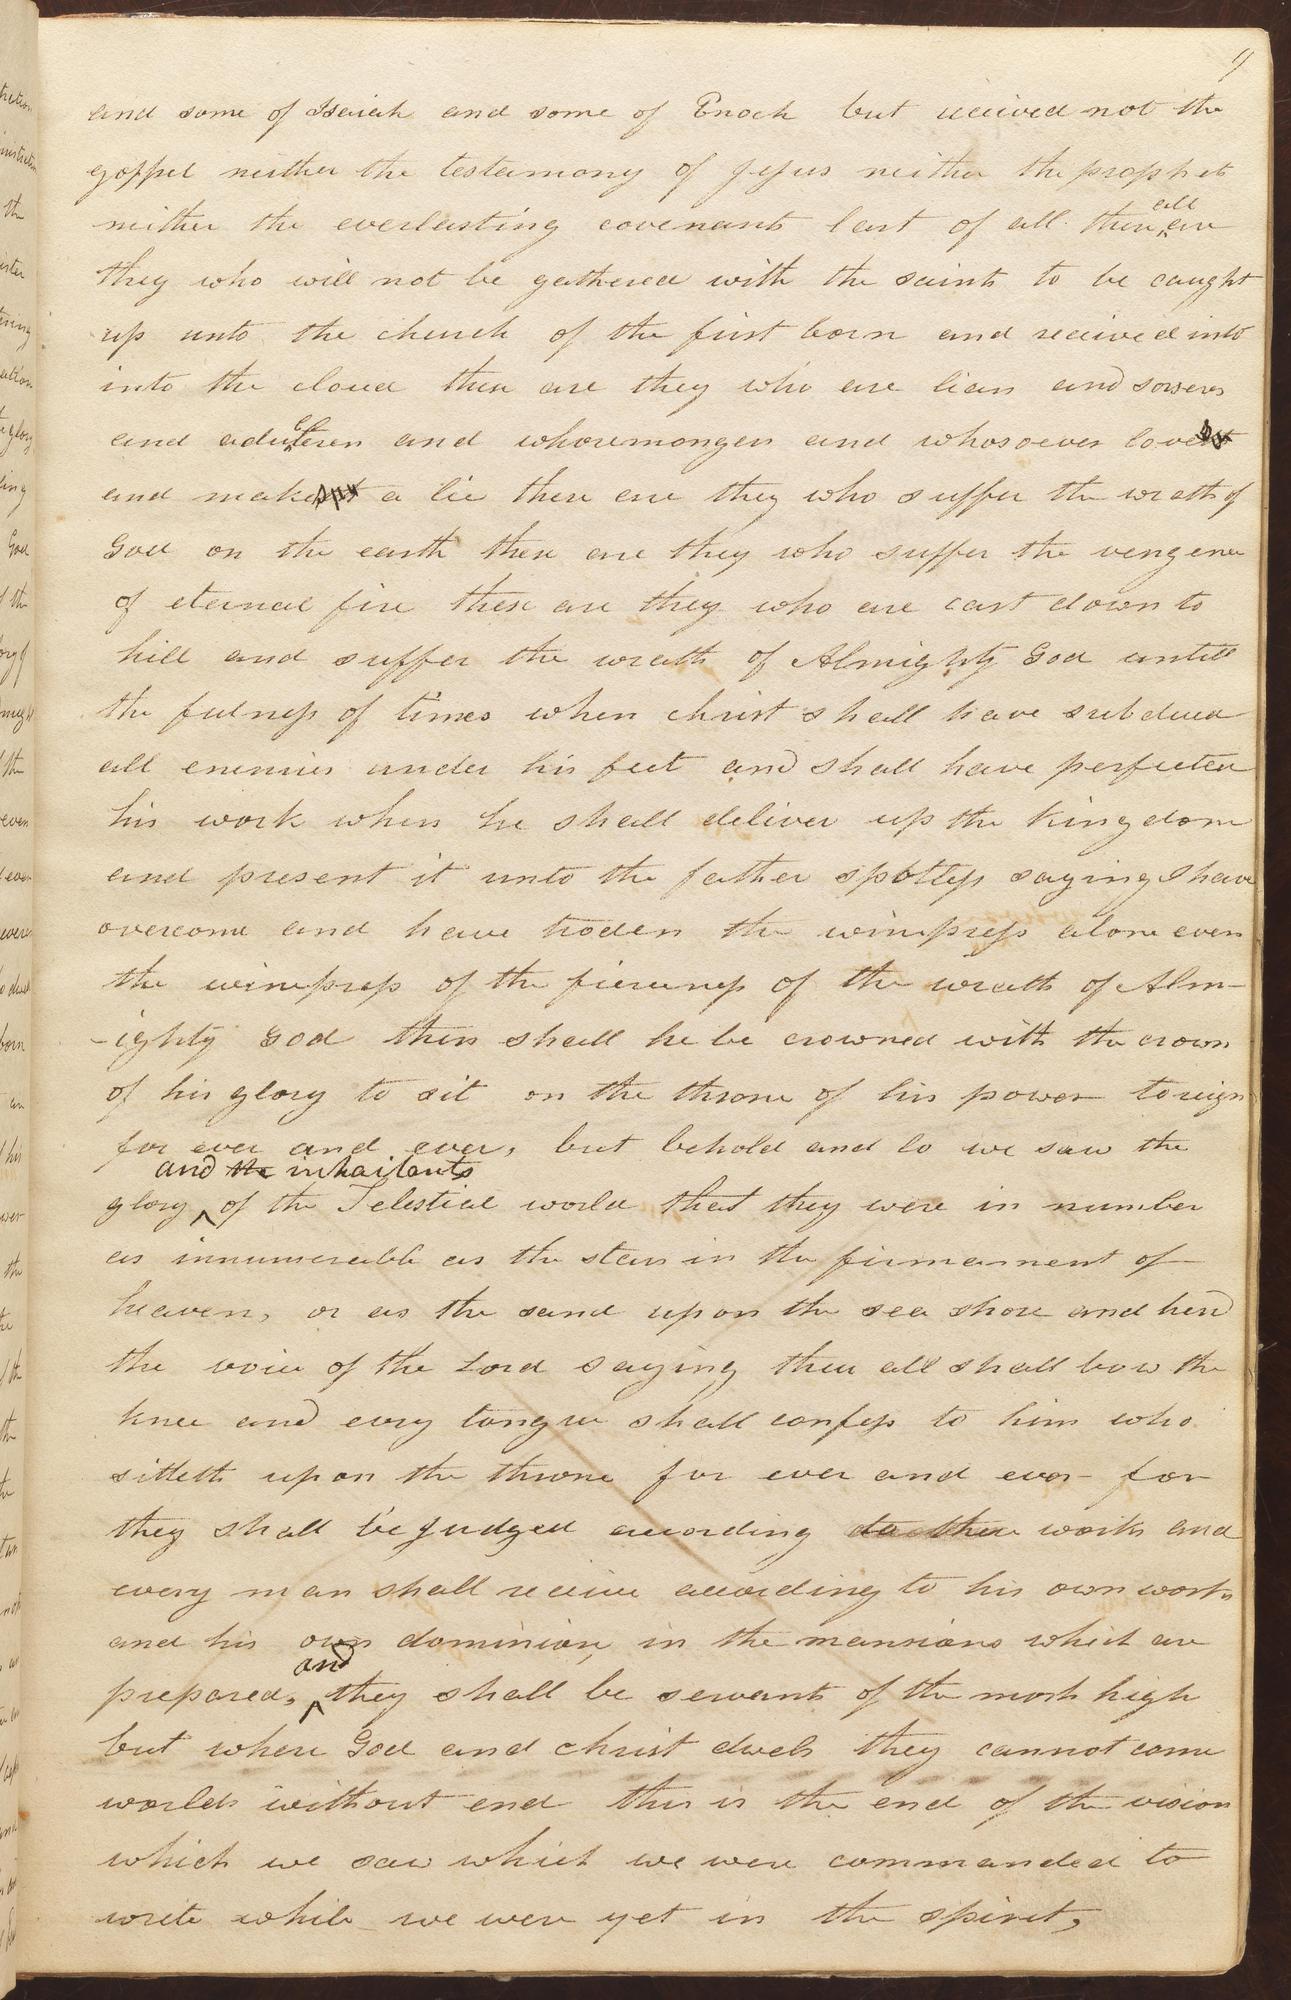 9
and some of Isaiah and some of Enoch but received not the
gospel neither the testamony of Jesus neither the prophets
neither the everlasting covenants last of all these all are
they who will not be gathered with the saints to be caught
up unto the church of the first born and received into
into the cloud these are they who are liars and sorserers
and adulterers and whoremongers and whosoever loves
and makes a lie these are they who suffer the wrath of
God on the earth these are they who suffer the vengence
of eternal fire these are they who are cast down to
hell and suffer the wrath of Almighty God untill
the fulness of times when christ shall have subdued
all enemies under his feet and shall have perfected
his work when he shall deliver up the kingdom
and present it unto the father spotless saying I have
overcome and have troden the winepress alone even
the winepress of the fierceness of the wrath of Alm-
-ighty God then shall he be crowned with the crown
of his glory to sit on the throne of his power to reign
for ever and ever, but behold and lo we saw the
and the inhaitants
glory of the Telestial world that they were in number
as innumerable as the stars in the firmament of
heaven, or as the sand upon the sea shore and herd
the voice of the Lord saying these all shall bow the
knee and every tongue shall confess to him who
sitteth upon the throne for ever and ever for
they shall be Judged according to their works and
every man shall receive according to his own works
and his own dominion, in the mansions which are
and
prepared, they shall be servants of the most high
but where God and christ dwels they cannot come
worlds without end this is the end of the vision
which we saw which we were commanded to
write while we were yet in the spirit,